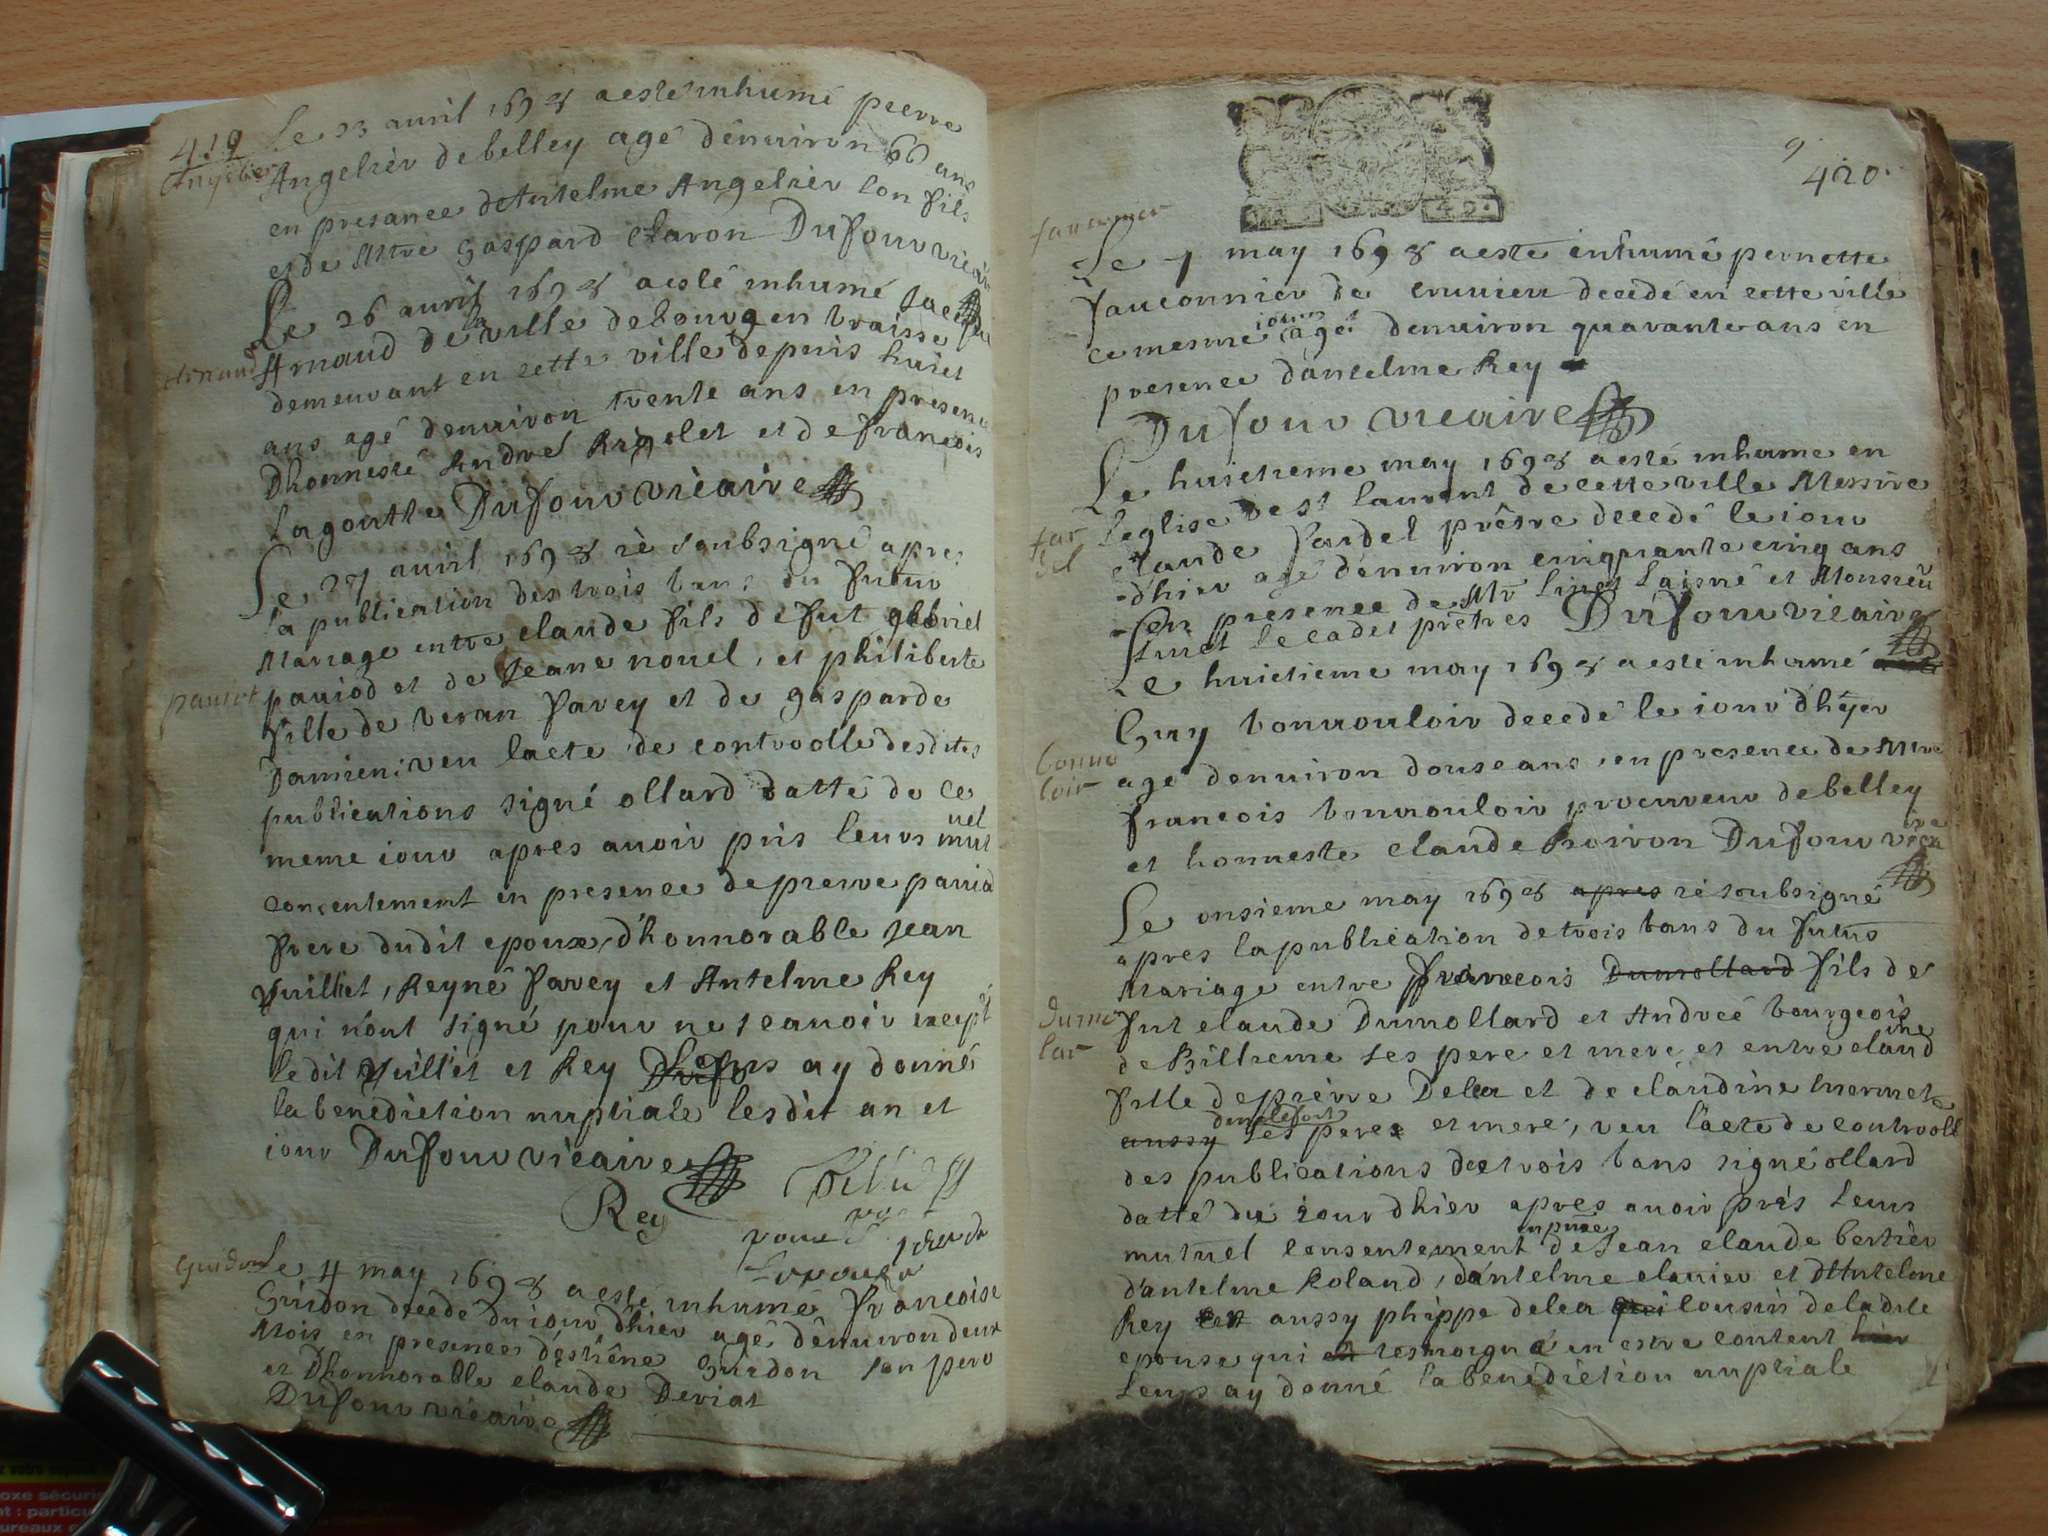 419
Le 23 auril 1698 a esté inhumé pierre
Angelier
Angelier de belley agé d'enuiron 66 ans
en presance d'Antelme Angelier son fils
et de Mtre Gaspard Charon Dufour vicaire
Le 26 auril 1698 a esté inhumé
Arnaud
Arnaud de la ville de bourg en braisse
demeurant en cette ville depuis huict
ans agé denuiron trente ans en presence
Dhonneste André Rigolet et de francois
Lagoutte Dufour vicaire
Le 27 auril 1698 ie soubsigné apres
la publication des trois bans du futur
Mariage entre claude fils de fut gabriel
pauiot
pauiod et de Jeane nouel, et philiberte
fille de veran favey et de gasparde
Damien: veu lacte de controolle desdites
publications signé ollard datté de ce
meme iour apres auoir pris leurs mutuel
concentement en presence de pierre pauiod
frere dudit epoux, d'honnorable Jean
Vuilliet, Reyné favey et Antelme Rey
qui n'ont signé pour ne scauoir except
ledit Vuilliet et Rey Dufo Leurs ay donné
la benediction nuptiale lesdit an et
iour Dufour vicaire
Rey
Guidon
Le 4 may 1698 a esté inhumé francoise
Guidon decedé du iour dhier agé dénuiron deux
Mois en presences d'estiéne Guidon son pere
et Dhonnorable claude Deriat
Dufour vicaire
9
420.
fauconnier
Le 7 may 1698 a este inhumé pernette
fauconnier de cruuieu decedé en cette ville
ce mesme iour agét denuiron quarante ans en
presence d'antelme Rey
Dufour vicaire
Le huictieme may 1698 a esté inhume en
Leglise de st laurent de cette ville Messire
far
del
claude fardel prêstre decedé le iour
d'hier agé d'enuiron cinquante cinq ans
en presence de Mtr Sinet Laisné et Monsieur
Sinet Le cadet prêtres Dufour vicaire
Le huictieme may 1698 a esté inhumé
Guy bonuouloir decedé le iour d'hyer
bonuo
loir
agé denuiron douse ans, en presence de Mtre
francois bonuouloir procureur de belley
et honneste claude Roiron Dufour vicaire
Le onsieme may 1698 apres ie soubsigné
apres la publication de trois bans du futus
Mariage entre francois Dumollard fils de
dumo
lar
fut claude Dumollard et Andreé bourgeois
de Billieme ses pere et mere et entre claudine
fille de pierre Delea et de claudine mermet
aussy ses pere et mere, veu l'acte de controoll
des publications de trois bans signé ollard
datté du iour dhier apres auoir pris leurs
en pnce
mutuel consentement de Jean claude bertier
d'antelme Roland, d'antelme clauier et d'Antelme
Rey et aussy phippe delea qui cousin de ladite
epouse qui et tesmoigné en estre content hier
Leurs ay donné la benediction nuptiale